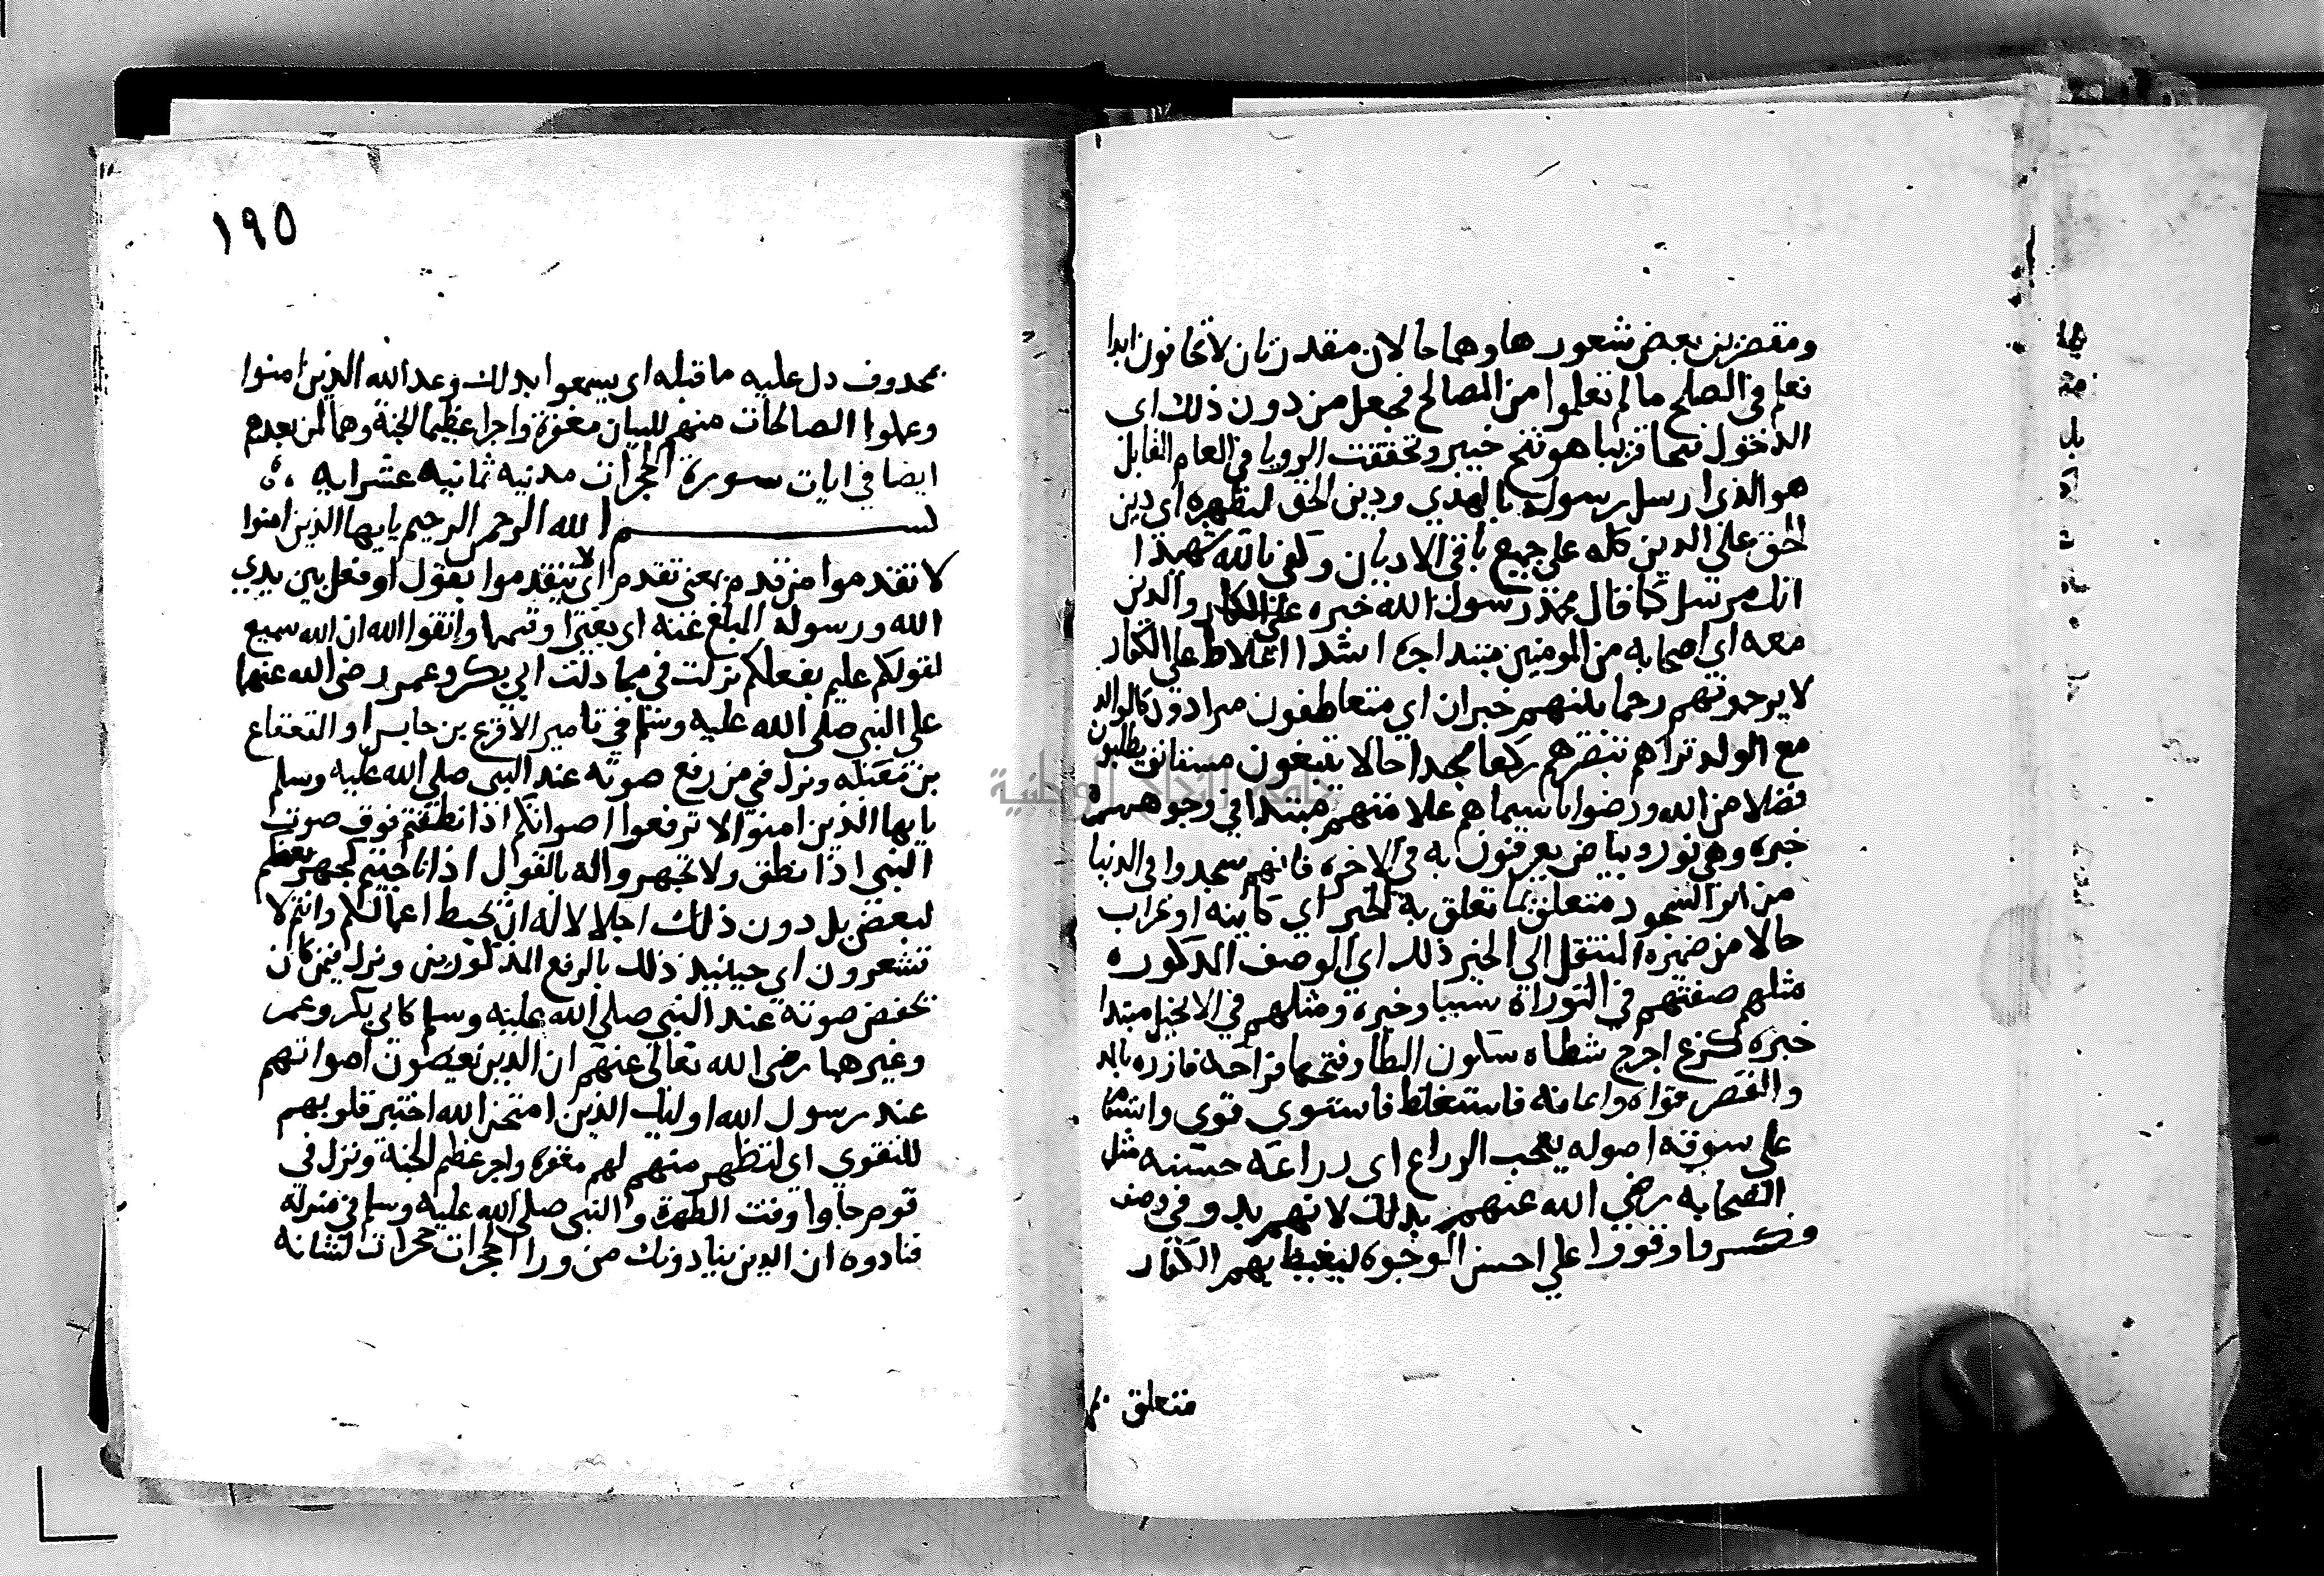 ومقصرين بعض شعورها وهما حالان مقدرتان لا تخافون ابدا
نعلم في الصلح ما لم تعلموا من المصالح فجعل من دون ذلك اي
الدخول فتحا قريبا هو فتح خيبر وتحققت الرويا في العام القابل
هو الذي ارسل رسوله بالهدي ودين الحق ليظهره اي دين
الحق على الدين كله على جميع باقي الاديان وكفى بالله شهيدا
انك مرسل كما قال محمد رسول الله خبره والذين
معه اي اصحابه من المومنين مبتدا خبره اشدا اغلاظ على الكفار
لا يرحمونهم رحما بينهم خبران اي متعاطفون متوادون كالوالد
مع الولد تراهم تبصرهم ركعا سجدا حالا يبتغون مستانف يطلبون
فضلا من الله ورضوانا سيماهم علامتهم مبتدا في وجوههم
خبره وهي نور وبياض يعرفون به في الاخره فانهم سجدوا في الدنيا
من اثر السجود متعلق بما تعلق به الخبر اي كاينه اوعراب
حالا من ضميره المنتقل الي الخبر ذلك اي الوصف المذكوره
مثلهم صفتهم في التوراة مبتدا وخبره ومثلهم في الانجيل مبتدا
خبره كزرع اخرج شطاه سكون الطا وفتحها فراخه فازره بالمد
والقصر قواه واعانه فاستغلظ فاستوى قوي واستقا
على سوقه اصوله يعجب الزراع اي زراعه حسنه مثل
الصحابه رضي الله عنهم بذلك لانهم بدو في ضعف
فكسروا وقووا علي احسن الوجوه ليغيظ بهم الكفار
متعلق بم
١٩٥
بمحدوف دل عليه ما قبله اي يسمعوا بدلك وعد الله الذين امنوا
وعملوا الصالحات منهم للبيان مغفرة واجرا عظيما الجنة وهما لمن بعدهم
ايضا في ايات سورة الحجرات مدنيه ثمانيه عشر ايه
بسم الله الرحمن الرحيم يايها الذين امنوا
لا تقدموا من قدم بمعنى تقدم اي لا تتقدموا بقول او فعل بين يدي
الله ورسوله المبلغ عنه اي بغير اذنهما واتقوا الله ان الله سميع
لقولكم عليم بفعلكم نزلت في مجادلت ابي بكر وعمر رضى الله عنهما
على النبي صلى الله عليه وسلم في تامير الاقرع بن حابس او القعقاع
بن معبد ونزل في من رفع صوته عند النبي صلى الله عليه وسلم
يايها الذين امنوا لا ترفعوا اصواتكم اذا نطقتم فوق صوت
النبي اذا نطق ولا تجهروا له بالقول اذا ناجيتم كجهر بعضكم
لبعض بل دون ذلك اجلالا له ان تحبط اعمالكم وانتم لا
تشعرون اي حينيذ ذلك بالرفع المذكورين ونزل فيمن كان
يخفض صوته عند النبي صلى الله عليه وسلم كابي بكر وعمر
وغيرهما رضى الله تعالى عنهم ان الذين يغضون اصواتهم
عند رسول الله اوليك الذين امتحن الله اختبر قلوبهم
للتقوي اي لتظهر منهم لهم مغفرة واجر عظيم الجنة ونزل في
قوم جاوا وقت الظهرة والنبي صلى الله عليه وسلم في منزله
فنادوه ان الذين ينادونك من ورا الحجرات حجرات لنسائه